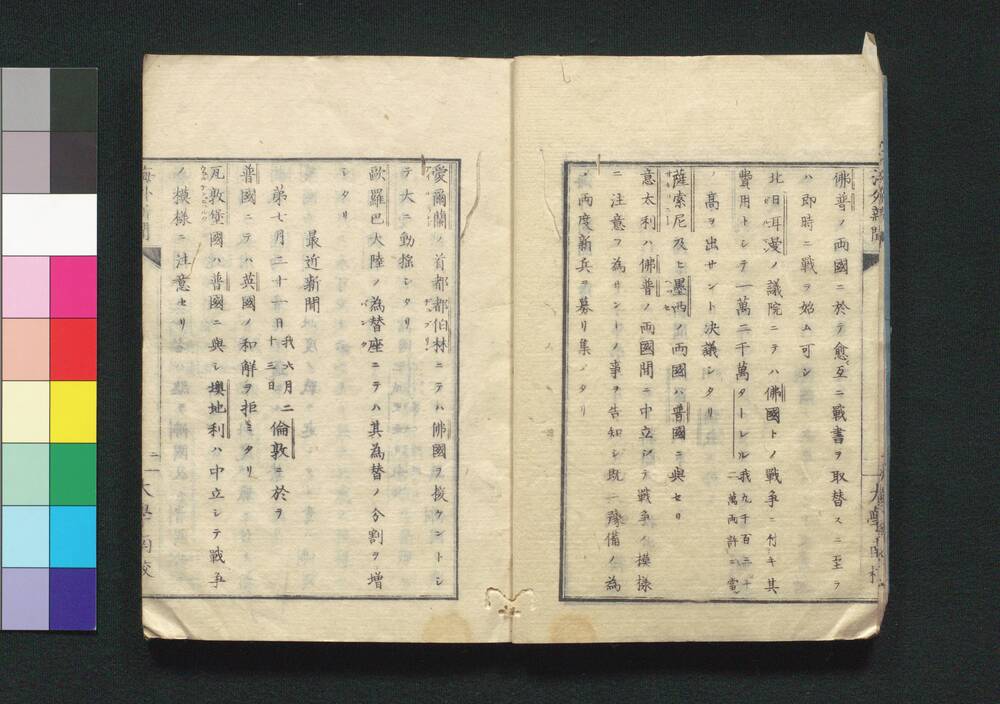 佛普ノ両國ニ於テ愈互ニ戰書ヲ取替スニ至ラ
ハ即時ニ戰ヲ始ム可シ
北日耳曼ノ議院ニテハ佛國トノ戰争ニ付キ其
費用トシテ一萬二千萬タトレル我九千百二十二萬両許ニ當
ノ高ヲ出サント決議シタリ
薩索尼及ヒ墨西ノ両國ハ普國ニ與セリ
意太利ハ佛普ノ両國間ニ中立シテ戰争ノ模様
ニ注意フ為サントノ事ヲ告知シ既ニ豫備ノ為
メ両度新兵ヲ募リ集メタリ
愛爾蘭ノ首都都伯林ニテハ佛國ヲ援ケントシ
テ大ニ動揺シタリ
歐羅巴大陸ノ為替座ニテハ其為替ノ分割ヲ增
シタリ
最近新聞
第七月二十一日我六月二十三日倫敦ニ於テ
普國ニテハ英國ノ和解ヲ拒ミタリ
瓦敦堡國ハ普國ニ與シ墺地利ハ中立シテ戰争
ノ模様ニ注意セリ
海外新聞
二
大學南校